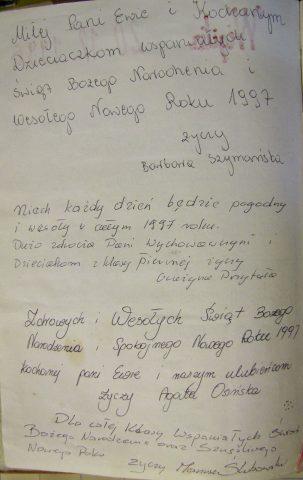 Miłej Pani Ewie i Kochanym
Dzieciaczkom wspaniałych
Świąt Bożego Narodzenia i
Wesołego Nowego Roku 1997
życzy
Barbara Szymańska
Niech każdy dzień będzie pogodny
i wesoły w całym 1997 roku.
Dużo zdrowia Pani Wychowawczyni i
Dzieciakom z klasy pierwszej życzy
Grażyna
Zdrowych i Wesołych Świąt Bożego
Narodzenia i Spokojnego Nowego Roku 1997
kochanej pani Ewie i naszym ulubieńcom
życzy Agata Osińska
Dla całej Klasy Wspaniałych Świąt
Bożego Narodzenia oraz Szczęśliwego
Nowego Roku
życzy